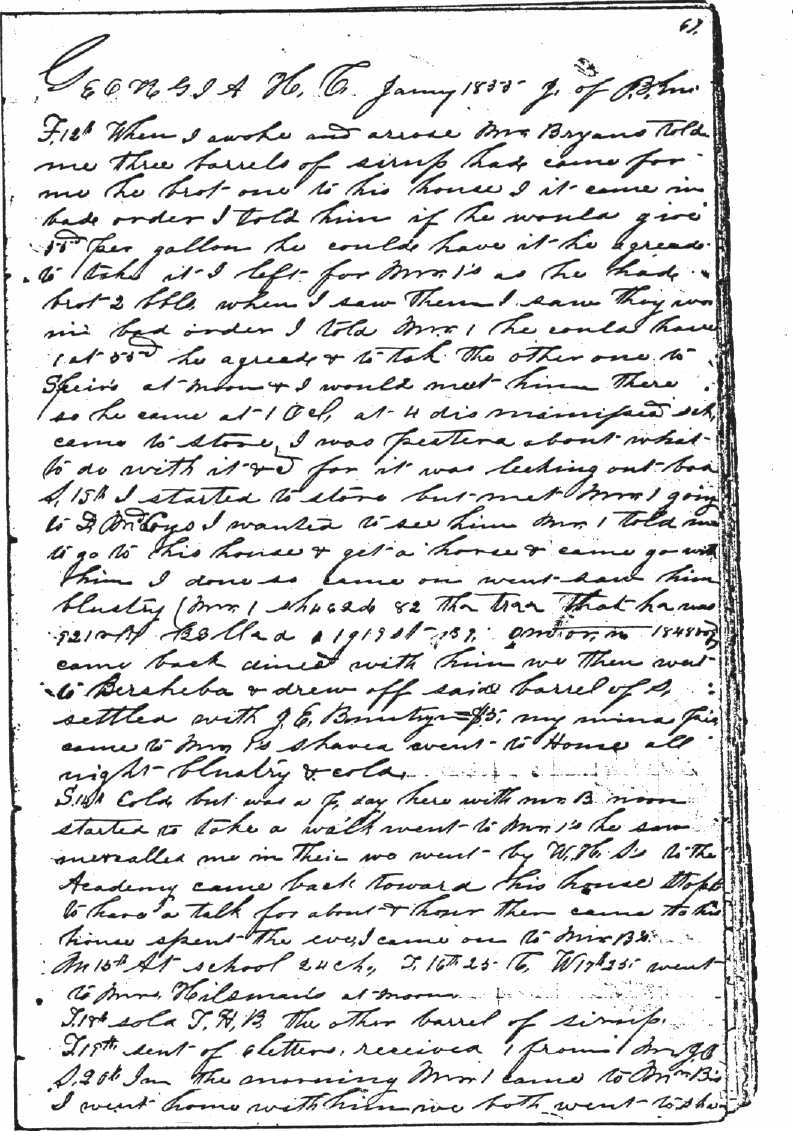 67.
GEORGIA H. C. Jany 1855 J. of P.B.
F. 12th When I awoke and arrose Mr. Bryans told
me three barrels of sirup had came for
me he brot one to his house & it came in
bad order I told him if he would give
55cts per gallon he could have it he agreed
to take it I left for Mr. 1's as he had
brot 2 bbls when I saw them I saw they wer
in bad order I told Mr. 1 he could have
1 at 55cts he agreed & to tak the other one to
Speirs at noon & I would meet him there
so he came at 1 Ocl, at 4 dismissed sch,
came to store, I was pesterd about what
to do with it &c for it was leeking out bad
S, 13th I started to store but met Mr. 1 going
to D. McCoys I wanted to see him Mr. 1 told me
to go to his house & get a horse & came go with
him I done so came on went saw him
blustry (Mr. 1 that he was
1848
came back dined with him we then went
to Bersheba & drew off said barrel of S,
settled with J. E. =$5; my mind fair
came to Mr. 1's shaved went to House all
night blustry & cold,
S. 14th Cold, but was a f. day here with mr. B noon
started to take a walk went to Mr. 1's he saw
me & called me in their we went by W. H. S's to the
Academy came back toward his house stopt
to have a talk for about & hour then came to his
house spent the eve, I came on to Mr. B's.
M 15th At school 24 ch, T. 16th 25 C, W 17th 25 went
to Mrs. Hilsman's at noon
T. 18th sold T. H. B. the other barrel of sirup.
F. 19th sent of 6 letters, received 1 from
S, 20th In the morning Mr. 1 came to Mr. B's
I went home with him we both went to